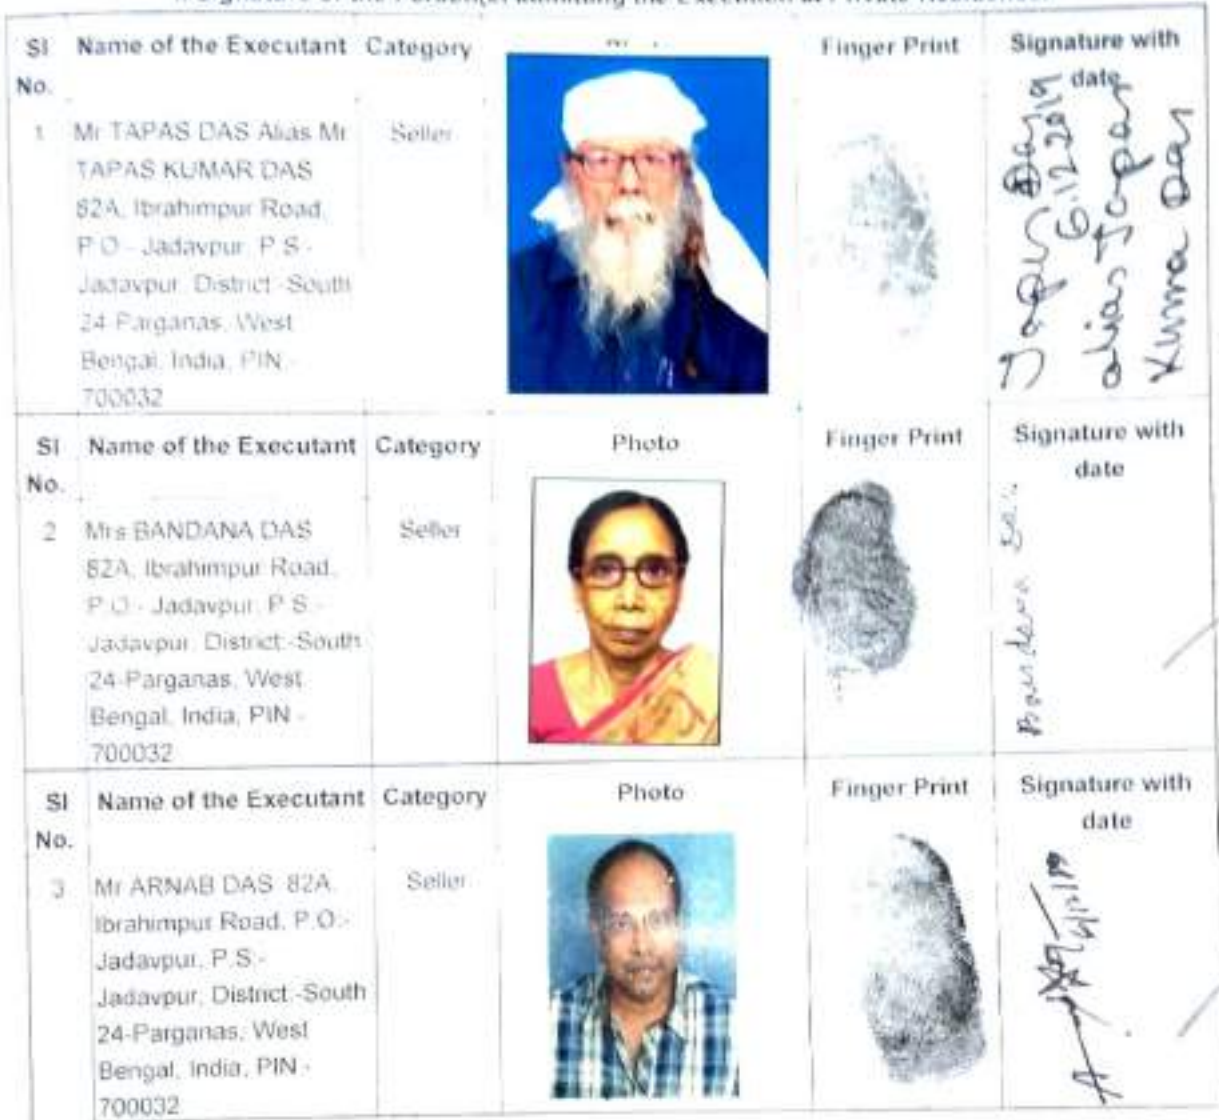 Signature of the Person(s) admitting the Execution at Private Residence.
Sl No. Name of the Executant Category Finger Print Signature with date
1 Mr TAPAS DAS Alias Mr Seller
TAPAS KUMAR DAS
82A, Ibrahimpur Road,
P.O - Jadavpur, P.S -
Jadavpur, District -South
24-Parganas, West
Bengal, India, PIN -
700032
Tapas Das
6.12.2019
alias Tapas
Kumar Das
Sl No. Name of the Executant Category Photo Finger Print Signature with date
2 Mrs BANDANA DAS Seller
82A, Ibrahimpur Road,
P.O - Jadavpur, P.S -
Jadavpur, District -South
24-Parganas, West
Bengal, India, PIN -
700032
Bandana Das
Sl No. Name of the Executant Category Photo Finger Print Signature with date
3 Mr ARNAB DAS 82A, Seller
Ibrahimpur Road, P.O -
Jadavpur, P.S -
Jadavpur, District -South
24-Parganas, West
Bengal, India, PIN -
700032
6/12/19